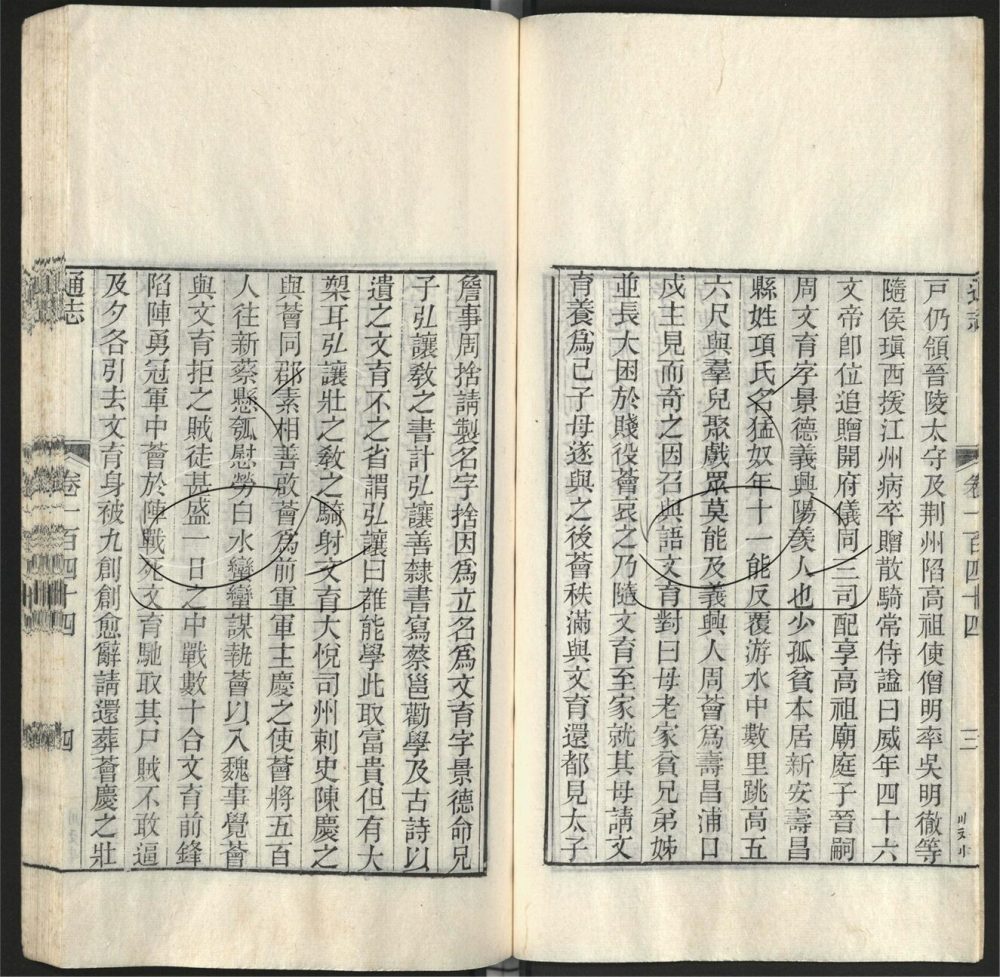 通志 卷一百四十四 三
戸仍領晉陵太守及荆州陷高祖使僧明率吳明徹等
隨侯瑱西援江州病卒贈散騎常侍諡曰威年四十六
文帝卽位追贈開府儀同三司配享高祖廟庭子晉嗣
周文育字景德義興陽羨人也少孤貧本居新安壽昌
縣姓項氏名猛奴年十一能反覆游水中數里跳高五
六尺與羣兒聚戲眾莫能及義興人周薈爲壽昌浦口
戍主見而奇之因召與語文育對曰母老家貧兄弟姊
並長大困於賤役薈哀之乃隨文育至家就其母請文
育養爲已子母遂與之後薈秩滿與文育還都見太子
詹事周捨請製名字捨因爲立名爲文育字景德命兄
子弘讓敎之書計弘讓善隸書寫蔡邕勸學及古詩以
遺之文育不之省謂弘讓曰誰能學此取富貴但有大
槊耳弘讓壯之敎之騎射文育大悅司州刺史陳慶之
與薈同郡素相善啟薈爲前軍軍主慶之使薈將五百
人往新蔡懸瓠慰勞白水蠻蠻謀執薈以入魏事覺薈
與文育拒之賊徒甚盛一日之中戰數十合文育前鋒
陷陣勇冠軍中薈於陣戰死文育馳取其尸賊不敢逼
及夕各引去文育身被九創創愈辭請還葬薈慶之壯
通志 卷一百四十四 四